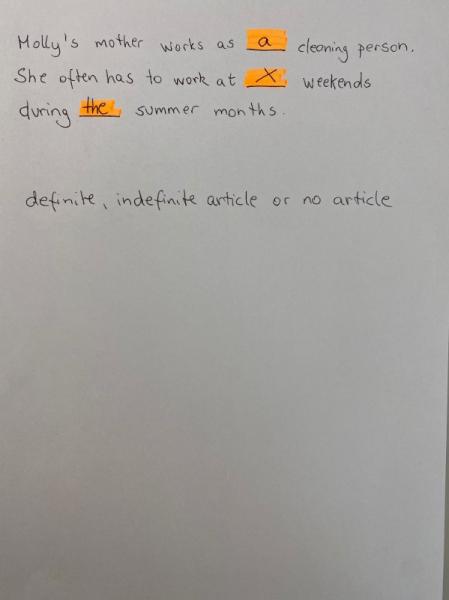 Molly's mother works as a cleaning person.
She often has to work at X weekends
during the summer months.
definite, indefinite article or no article